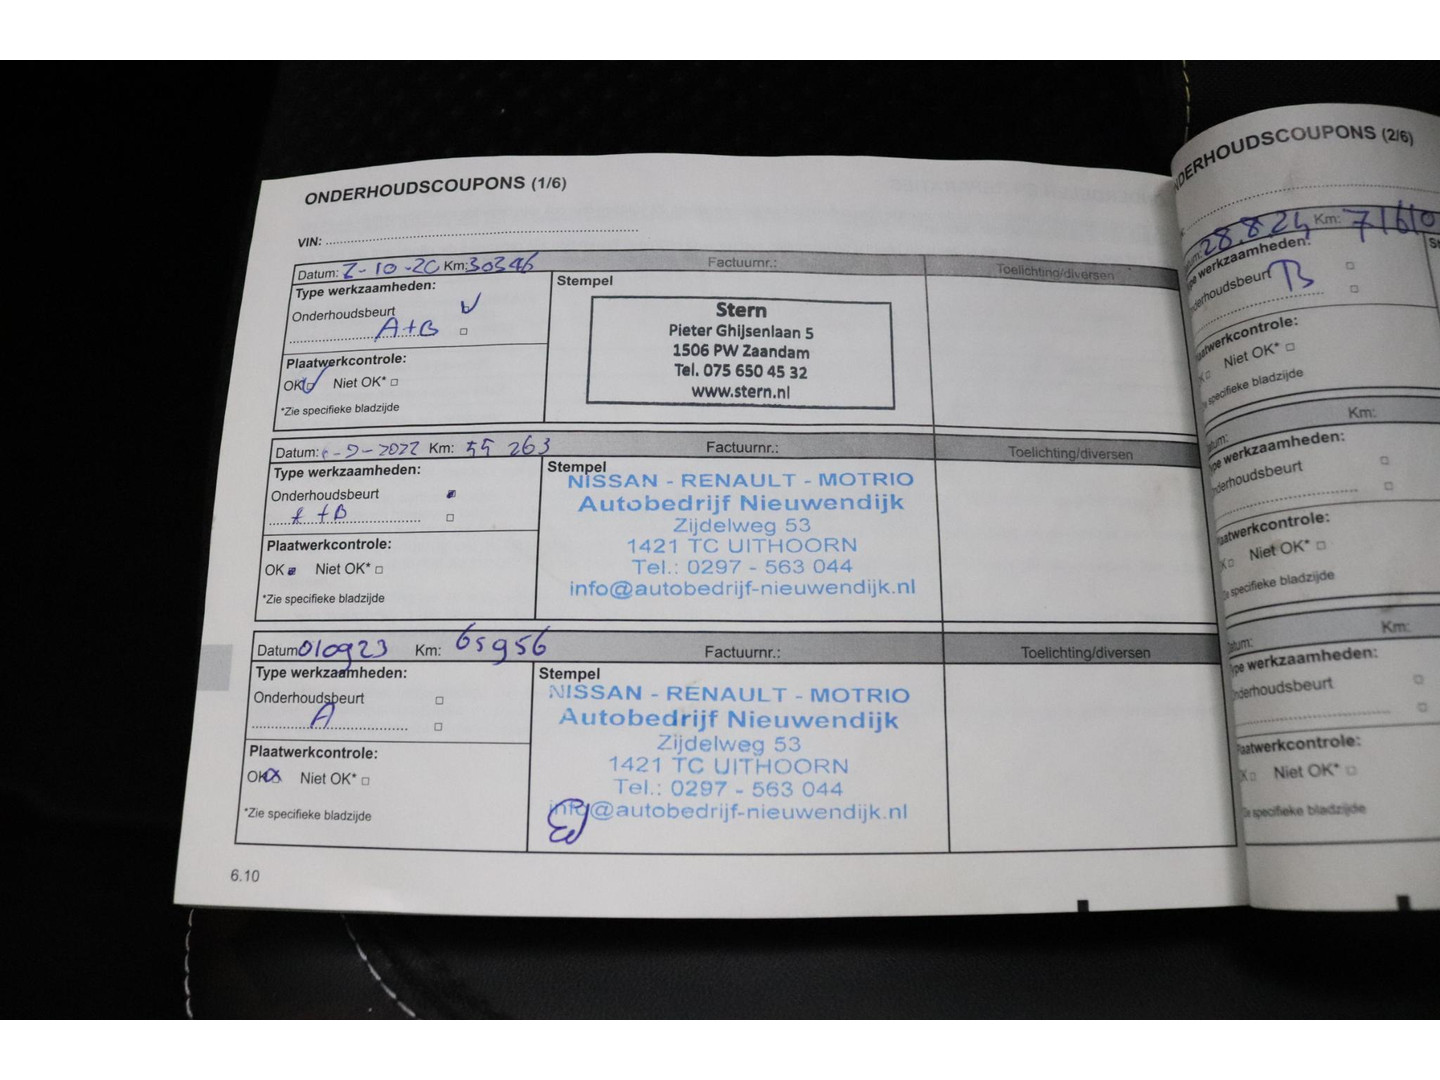 ONDERHOUDSCOUPONS (1/6)
VIN:
Datum: 2-10-20 Km: 30346 Factuurnr.: Toelichting/diversen
Type werkzaamheden:
Onderhoudsbeurt
A+B
Plaatwerkcontrole:
OK Niet OK*
*Zie specifieke bladzijde
Stempel
Stern
Pieter Ghijsenlaan 5
1506 PW Zaandam
Tel. 075 650 45 32
www.stern.nl
Datum: -9-2022 Km: 55 263 Factuurnr.: Toelichting/diversen
Type werkzaamheden:
Onderhoudsbeurt
+B
Plaatwerkcontrole:
OK Niet OK*
*Zie specifieke bladzijde
Stempel
NISSAN - RENAULT - MOTRIO
Autobedrijf Nieuwendijk
Zijdelweg 53
1421 TC UITHOORN
Tel.: 0297 - 563 044
info@autobedrijf-nieuwendijk.nl
Datum 010923 Km: 65956 Factuurnr.: Toelichting/diversen
Type werkzaamheden:
Onderhoudsbeurt
A
Plaatwerkcontrole:
OK Niet OK*
*Zie specifieke bladzijde
Stempel
NISSAN - RENAULT - MOTRIO
Autobedrijf Nieuwendijk
Zijdelweg 53
1421 TC UITHOORN
Tel.: 0297 - 563 044
info@autobedrijf-nieuwendijk.nl
6.10
NDERHOUDSCOUPONS (2/6)
atum: 28.8.24 Km: 71610
ype werkzaamheden:
nderhoudsbeurt B
laatwerkcontrole:
K Niet OK*
ie specifieke bladzijde
atum: Km:
ype werkzaamheden:
nderhoudsbeurt
laatwerkcontrole:
K Niet OK*
ie specifieke bladzijde
atum: Km:
ype werkzaamheden:
nderhoudsbeurt
laatwerkcontrole:
K Niet OK*
ie specifieke bladzijde